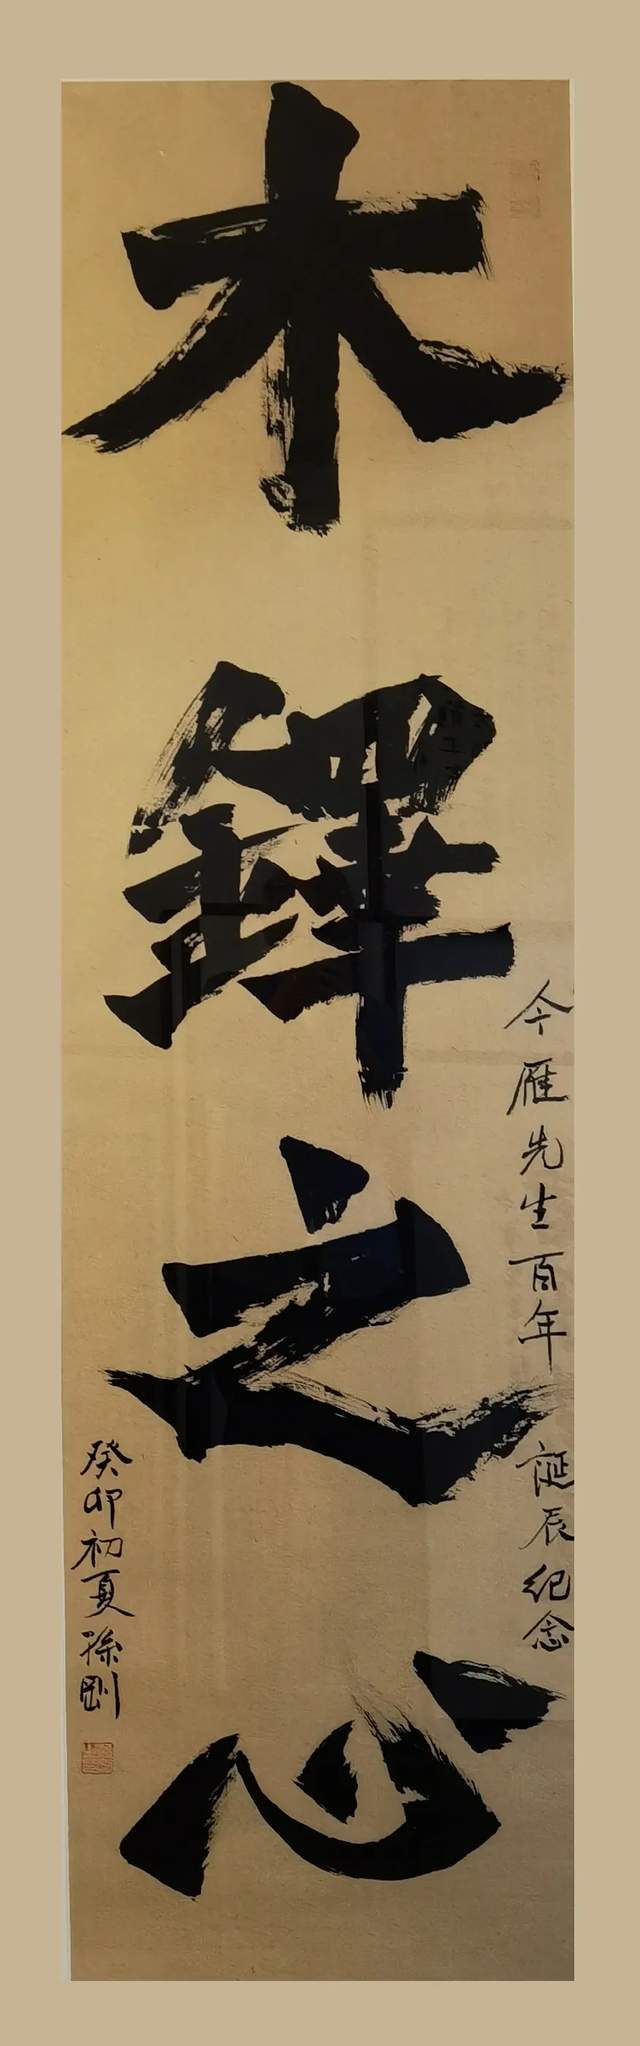 木鐸之心
今雁先生百年誕辰紀念
癸卯初夏孫剛